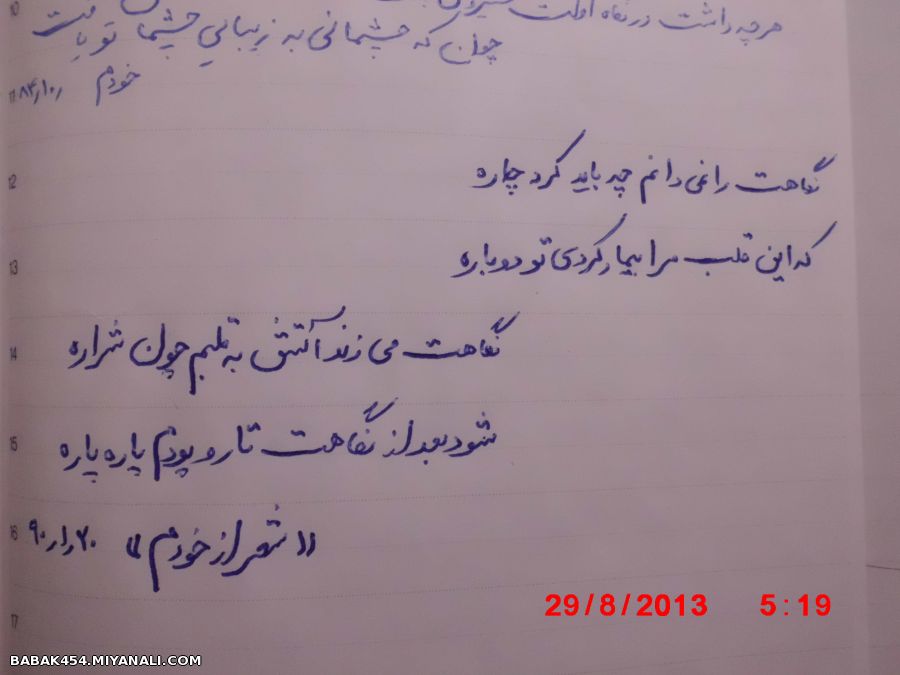 10
هر چه داشت در نگاه اولت
چون که چشمانی به زیبایی چشمان تو یافت
خودم
11
12 نگاهت را نمی دانم چه باید کرد چاره
13 که این قلب مرا بیمار کردی تو دوباره
14 نگاهت می زند آتش به قلبم چون شراره
15 شود بعد از نگاهت تار و پودم پاره پاره
16 "شعر از خودم"
17
29/8/2013 5:19
BABAK454.MIYANALI.COM